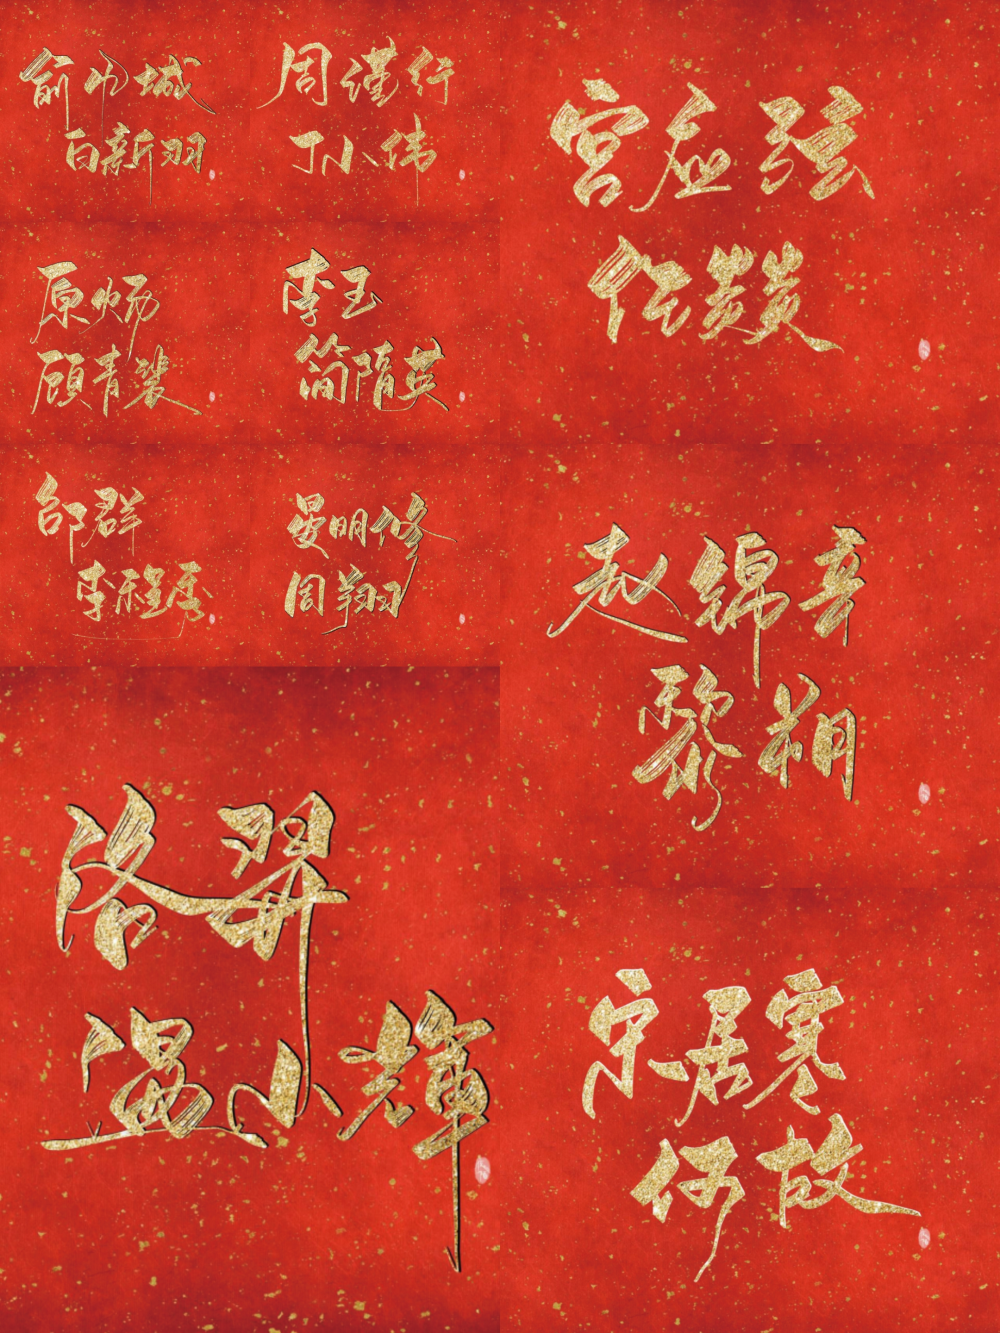 俞帆城
白新羽
周谨行
丁小伟
原炀
顾青裴
李玉
简隋英
邵群
李程秀
晏明修
周翔
洛羿
温小辉
宫应弦
任燚
赵锦辛
黎朔
宋居寒
何故